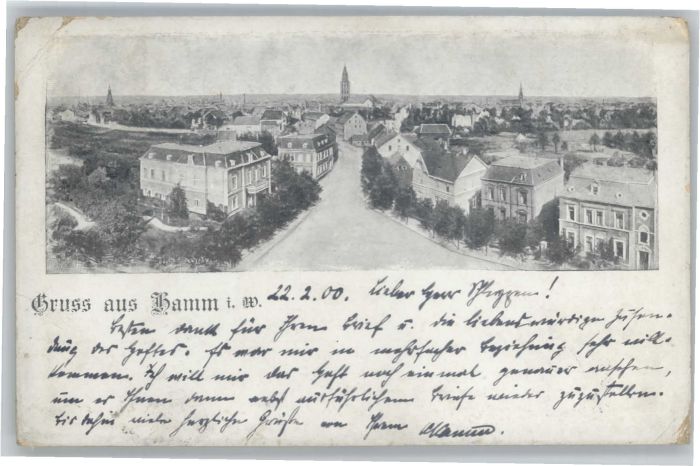 Gruss aus Hamm i. W. 22.2.00. Lieber Herr !
Besten Dank für Ihren Brief u. die liebenswürdige Zusen-
dung des Heftes. Es war mir in mehrfacher Beziehung sehr will-
kommen. Ich will mir das Heft noch einmal genauer ansehen,
um es Ihnen dann nebst ausführlichem Briefe wieder zuzustellen.
Bis dahin viele herzliche Grüße von Ihrem